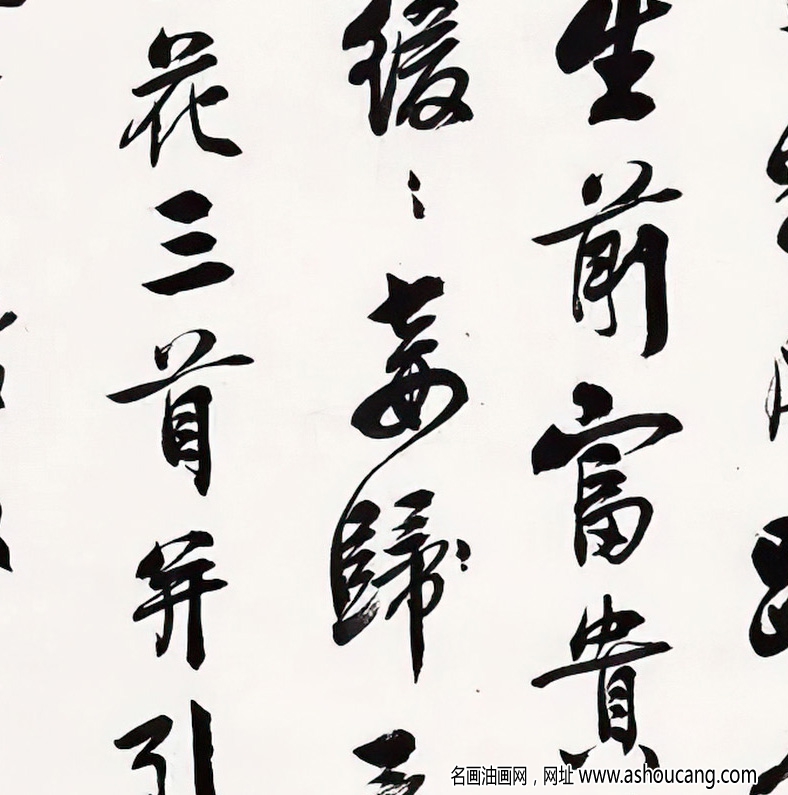 生前富貴
緩〻妾歸
花三首并引
名画油画网，网址 www.ashoucang.com